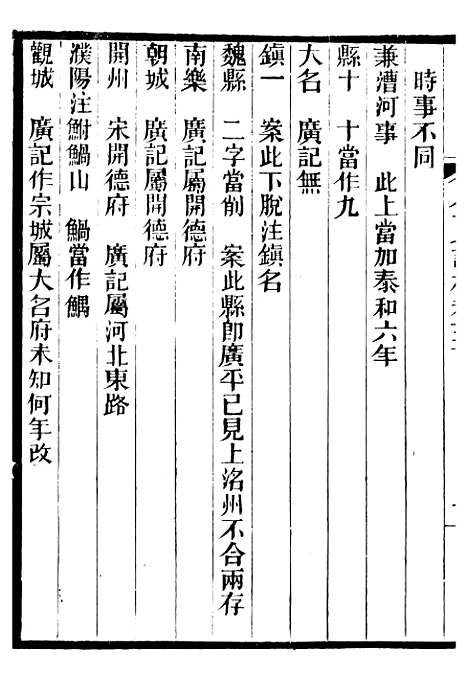 時事不同
兼漕河事　此上當加泰和六年
縣十　十當作九
大名　廣記無
鎮一　案此下脫注鎮名
魏縣　二字當削　案此縣卽廣平已見上洺州不合兩存
南樂　廣記屬開德府
朝城　廣記屬開德府
開州　宋開德府　廣記屬河北東路
濮陽注鮒鰨山　鰨當作鰅
觀城　廣記作宗城屬大名府未知何年改